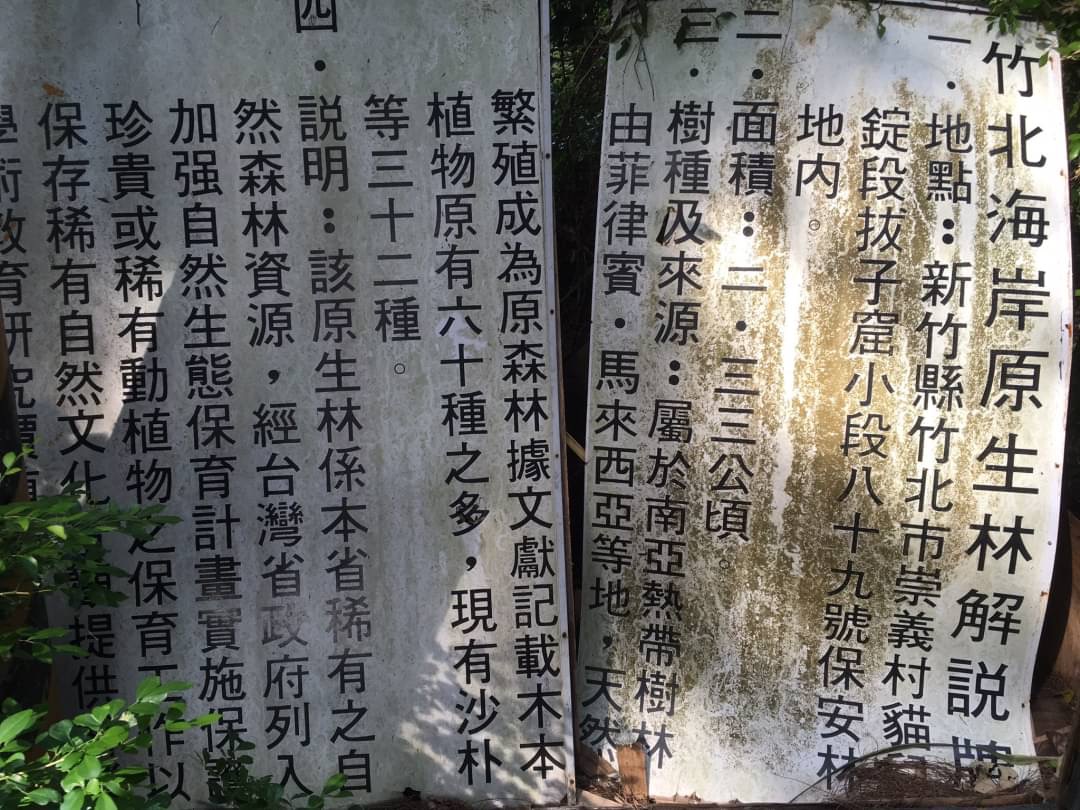 竹北海岸原生林解説牌
一．地點：新竹縣竹北市崇義村貓兒
錠段拔子窟小段八十九號保安林
地內。
二．面積：二．三三公頃。
三．樹種及來源：屬於南亞熱帶樹林
由菲律賓．馬來西亞等地，天然
繁殖成為原森林據文獻記載木本
植物原有六十種之多，現有沙朴
等三十二種。
四．説明：該原生林係本省稀有之自
然森林資源，經台灣省政府列入
加强自然生態保育計畫實施保護
珍貴或稀有動植物之保育工作以
保存稀有自然文化 提供
學術教育研究